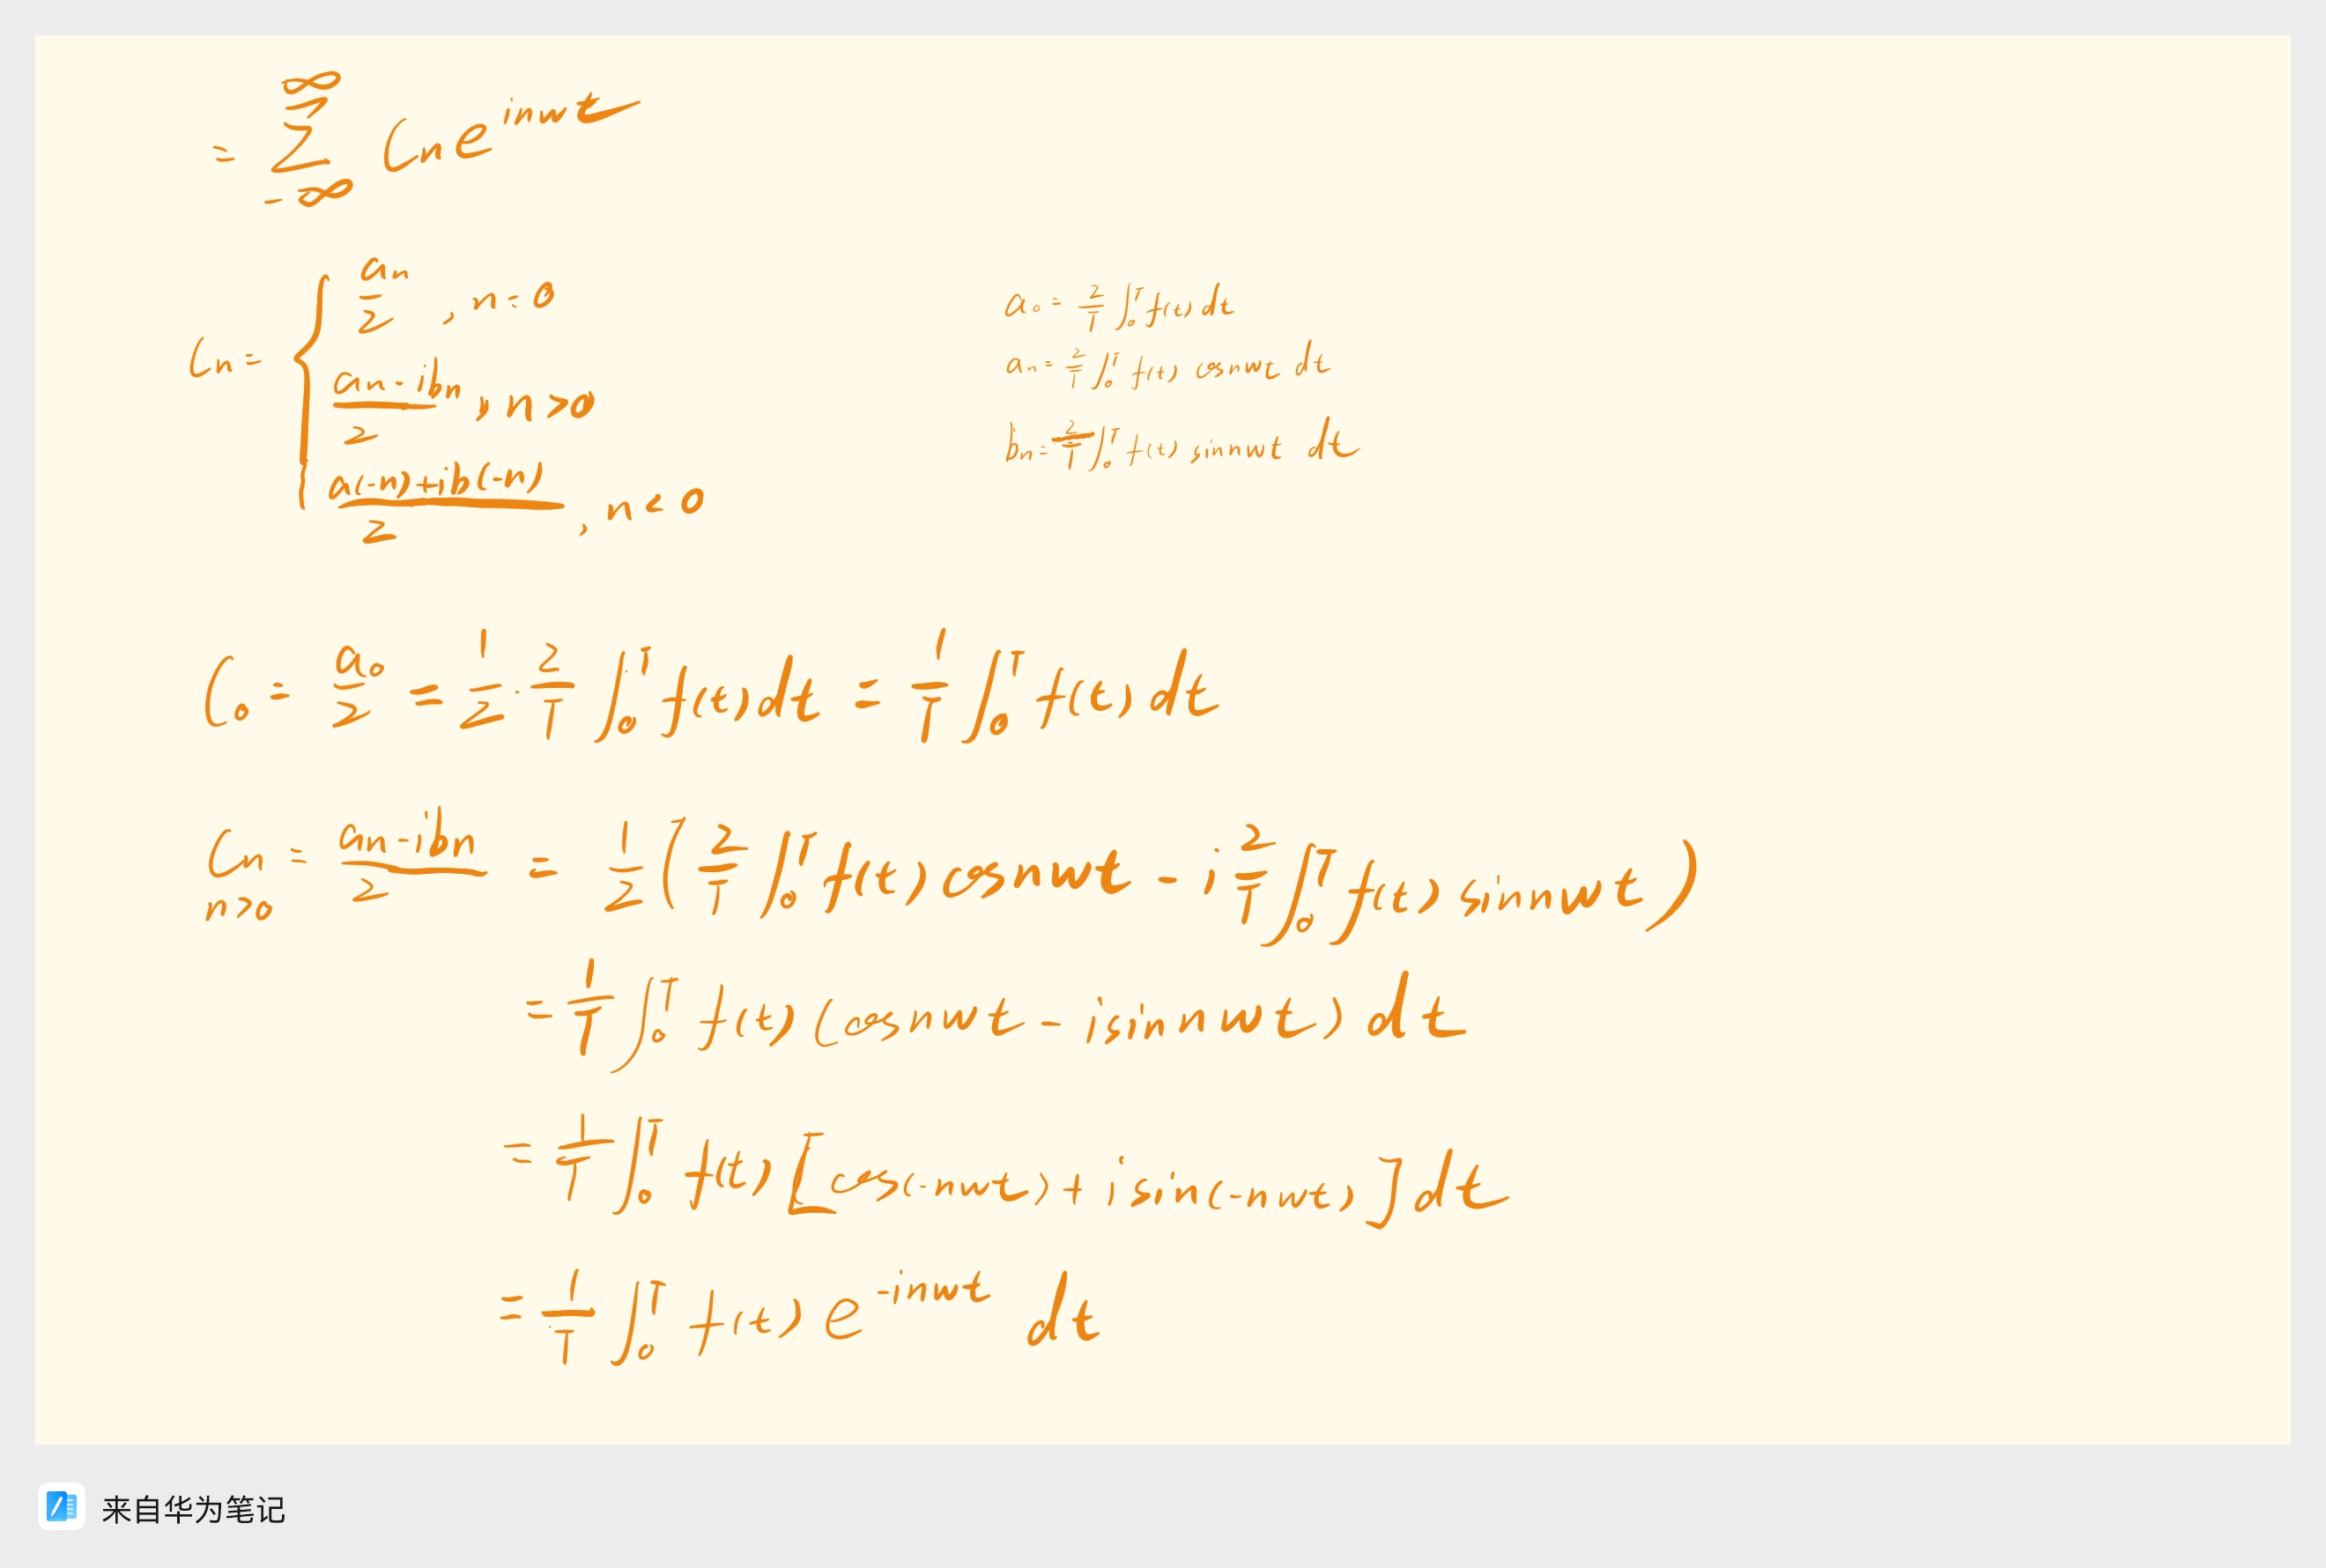 = ∑_{-∞}^{∞} Cₙ e^{inwt}
Cₙ = { aₙ/2 , n=0
(aₙ-ibₙ)/2 , n>0
(a(-n)+ib(-n))/2 , n<0
a₀ = 2/T ∫₀ᵀ f(t) dt
aₙ = 2/T ∫₀ᵀ f(t) cosnwt dt
bₙ = 2/T ∫₀ᵀ f(t) sinnwt dt
C₀ = a₀/2 = 1/2 · 2/T ∫₀ᵀ f(t) dt = 1/T ∫₀ᵀ f(t) dt
Cₙ = (aₙ-ibₙ)/2 = 1/2 ( 2/T ∫₀ᵀ f(t) cosnwt - i 2/T ∫₀ᵀ f(t) sinnwt )
n>0
= 1/T ∫₀ᵀ f(t) (cosnwt - isinnwt) dt
= 1/T ∫₀ᵀ f(t) [cos(-nwt) + isin(-nwt)] dt
= 1/T ∫₀ᵀ f(t) e^{-inwt} dt
来自华为笔记